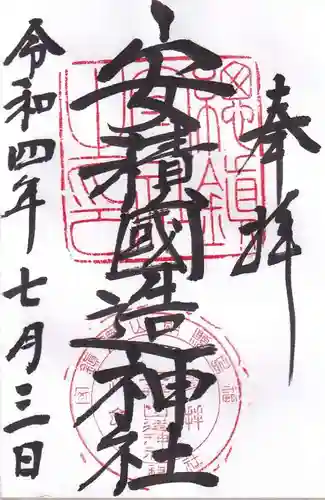 奉拝
安積國造神社
令和四年七月三日